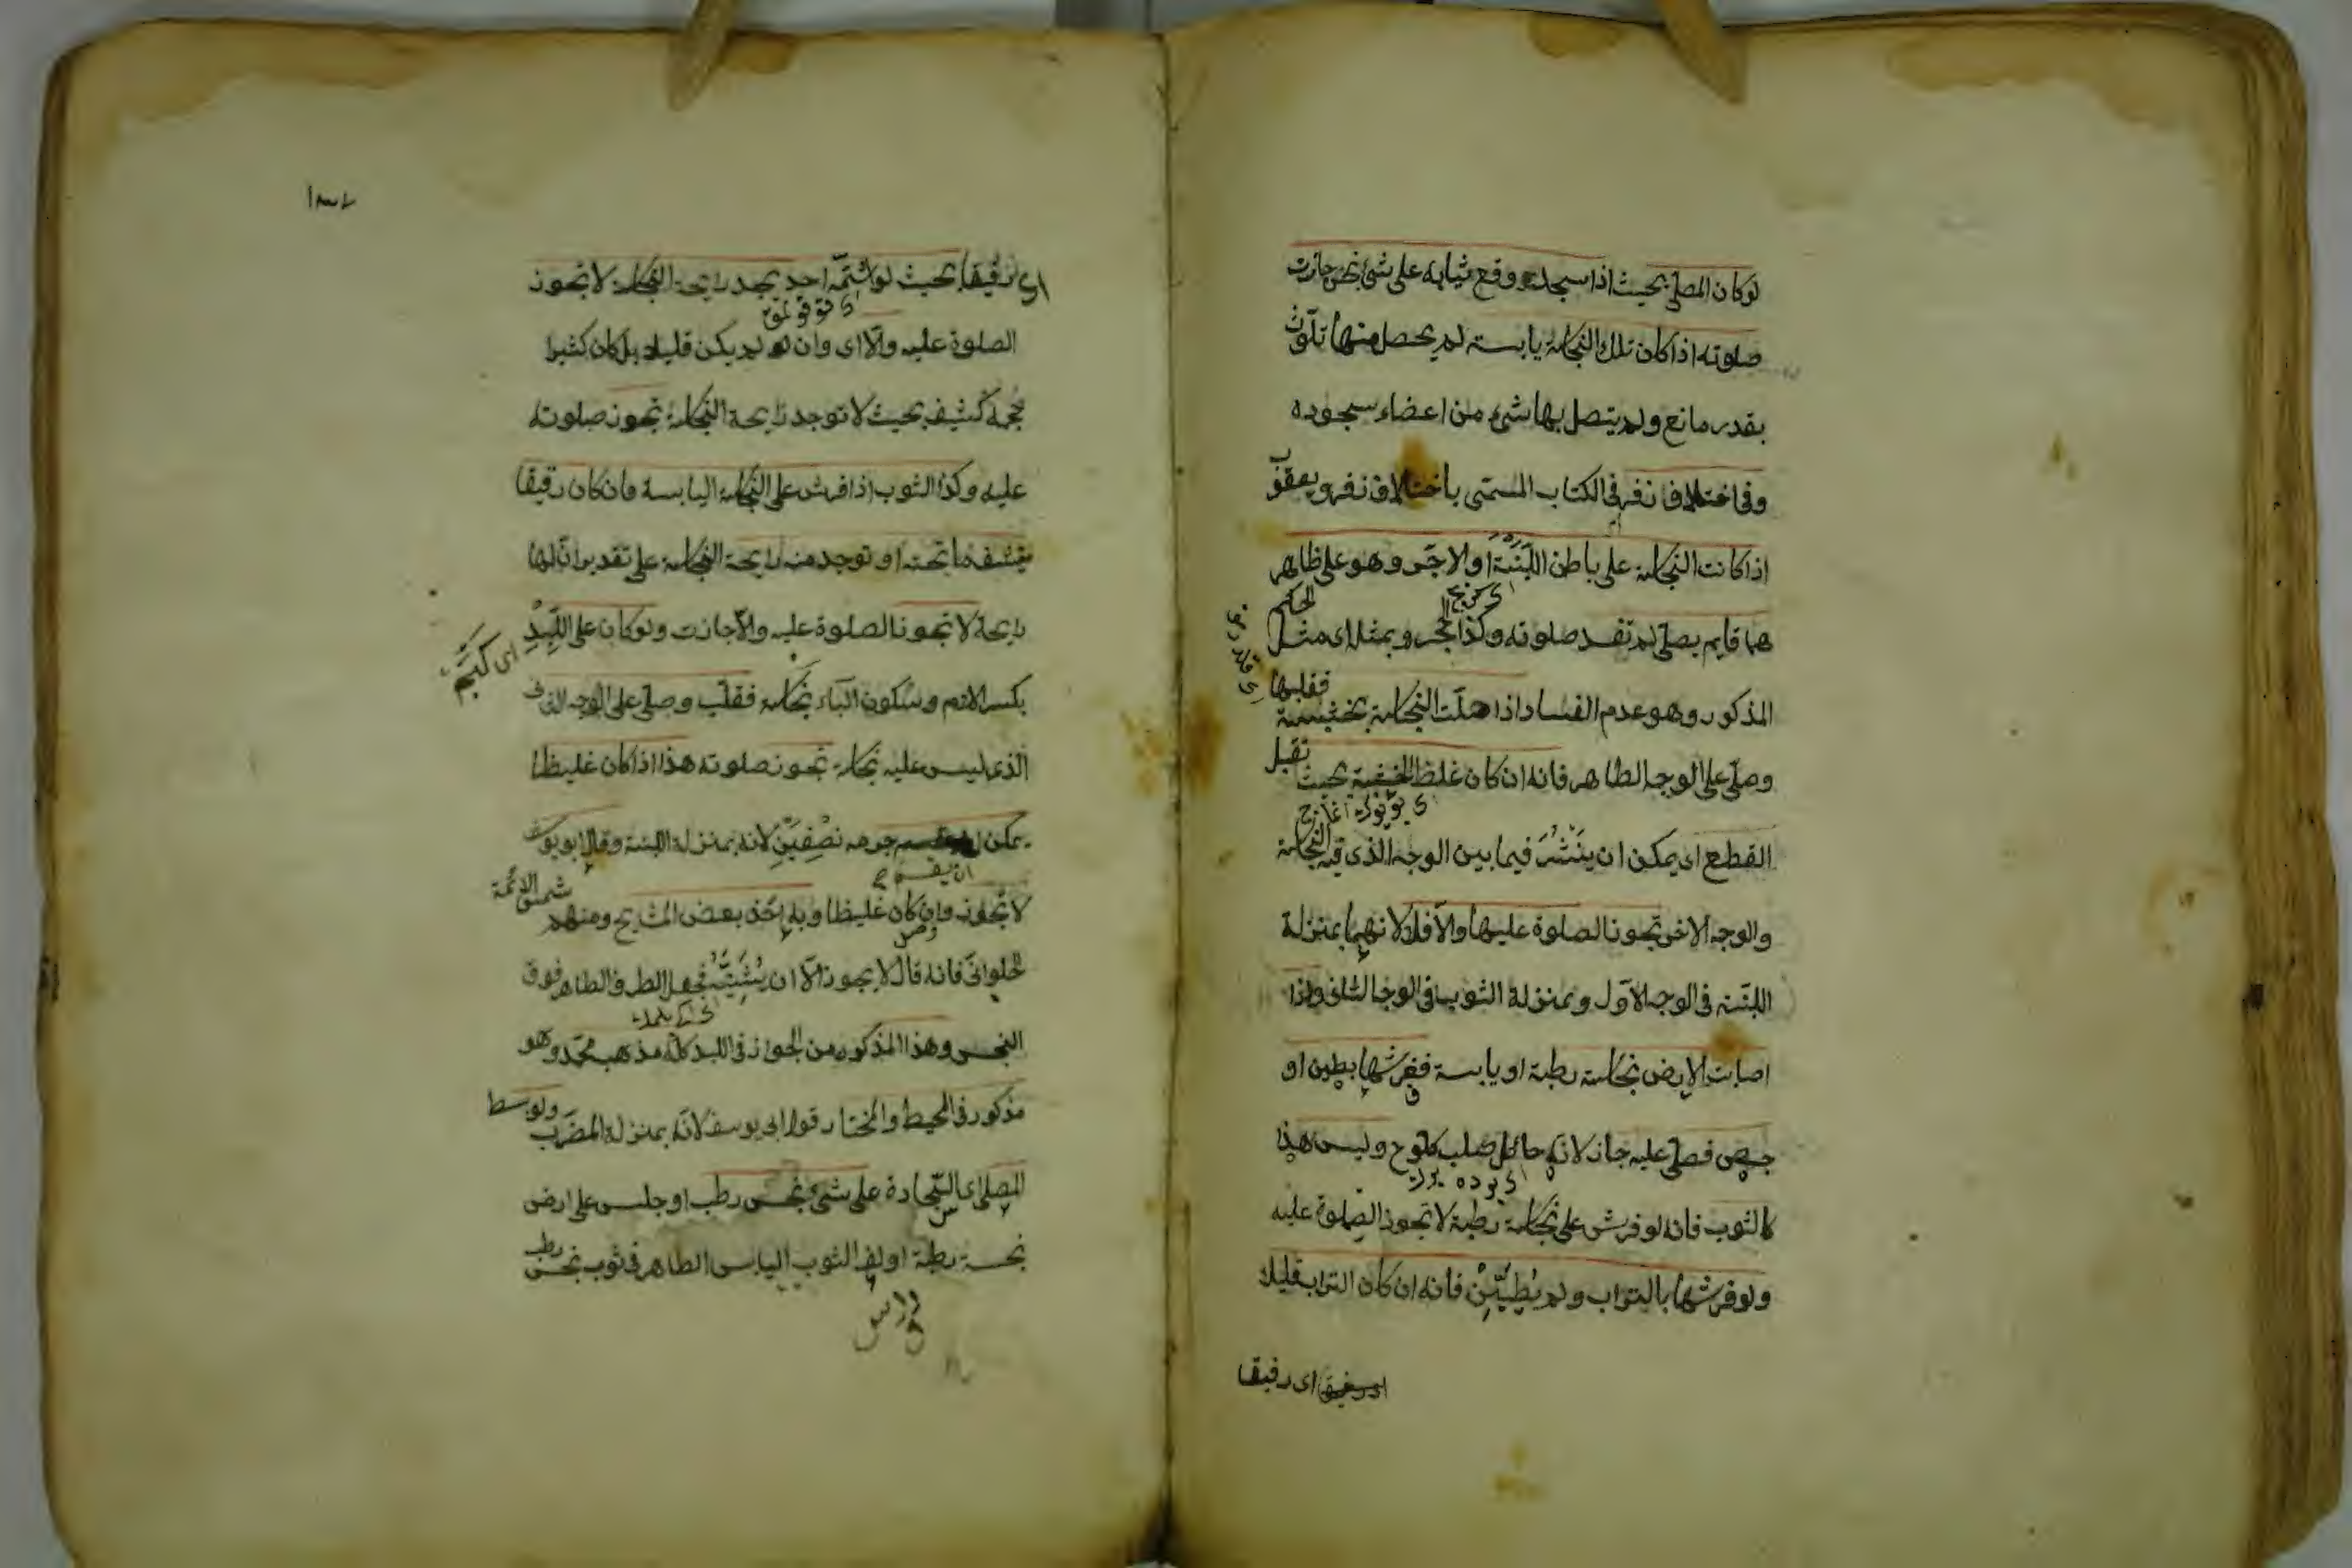 لو كان المصلي بحيث اذا سجد وقع ثيابه على شئ نجس جازت
صلوته اذا كان تلك النجاسة يابسة لم يحصل منها تلوّث
بقدر مانع ولم يتصل بها شئ من اعضاء سجوده
وفي اختلاف زفر في الكتاب المسمّى باختلاف زفر ويعقوب
اذا كانت النجاسة على باطن اللَّبِنَة او الاجّر وهو على ظاهر
هما قايم يصلّي لم تفسد صلوته وكذا الحجر وبمثله اى مثل الحكم
المذكور وهو عدم الفساد اذا حلّت النجاسة بخشبة فقلبها
وصلّى على الوجه الطاهر فانه ان كان غلظ الخشبة بحيث تقبل
القطع اى يمكن ان ينشر فيما بين الوجه الذى فيه النجاسة
والوجه الاخر تجوز الصلوة عليها والّا فلا لانهما بمنزلة
اللبنة في الوجه الاوّل وبمنزلة الثوب في الوجه الثاني واذا
اصابت الارض نجاسة رطبة او يابسة ففرشها بطين او
جص فصلّى عليه جاز لانه حائل صلب كلوح وليس هذا
كالثوب فانه لو فرش على نجاسة رطبة لا تجوز الصلوة عليه
ولو فرشها بالتراب ولم يُطَيِّن فانه ان كان التراب قليلا
اى رقيقا
اى رقيقا بحيث لو اشتمّه احد يجد رايحة النجاسة لا تجوز
الصلوة عليه والّا اى وان لم يكن قليلا بل كان كثيرا
كثيف بحيث لا توجد رايحة النجاسة تجوز صلوته
عليه وكذا الثوب اذا فرش على النجاسة اليابسة فان كان رقيقا
يشف ما تحته او توجد منه رايحة النجاسة على تقدير انّ لها
رايحة لا تجوز الصلوة عليه والّا جازت ولو كان على اللِّبْد
بكسر اللام وسكون الباء نجاسة فقلب وصلّى على الوجه
الذي ليس عليه نجاسة تجوز صلوته هذا اذا كان غليظا
يمكن ان يقسم جرمه نصفين لانه بمنزلة اللبنة وقال ابو يوسف
لا تجوز وان كان غليظا وبه اخذ بعض المشايخ ومنهم شمس الائمة
الحلوانيّ فانه قال لا يجوز الّا ان يثنيه فيجعل الطرف الطاهر فوق
النجس وهذا المذكور من الجواز في اللبد كله مذهب محمد وهو
مذكور في المحيط والمختار قول ابي يوسف لانّه بمنزلة المضرّب ولو بسط
المصلى اى السّجادة على شئ نجس رطب او جلس على ارض
نجسة رطبة او لف الثوب اليابس الطاهر في ثوب نجس رطب